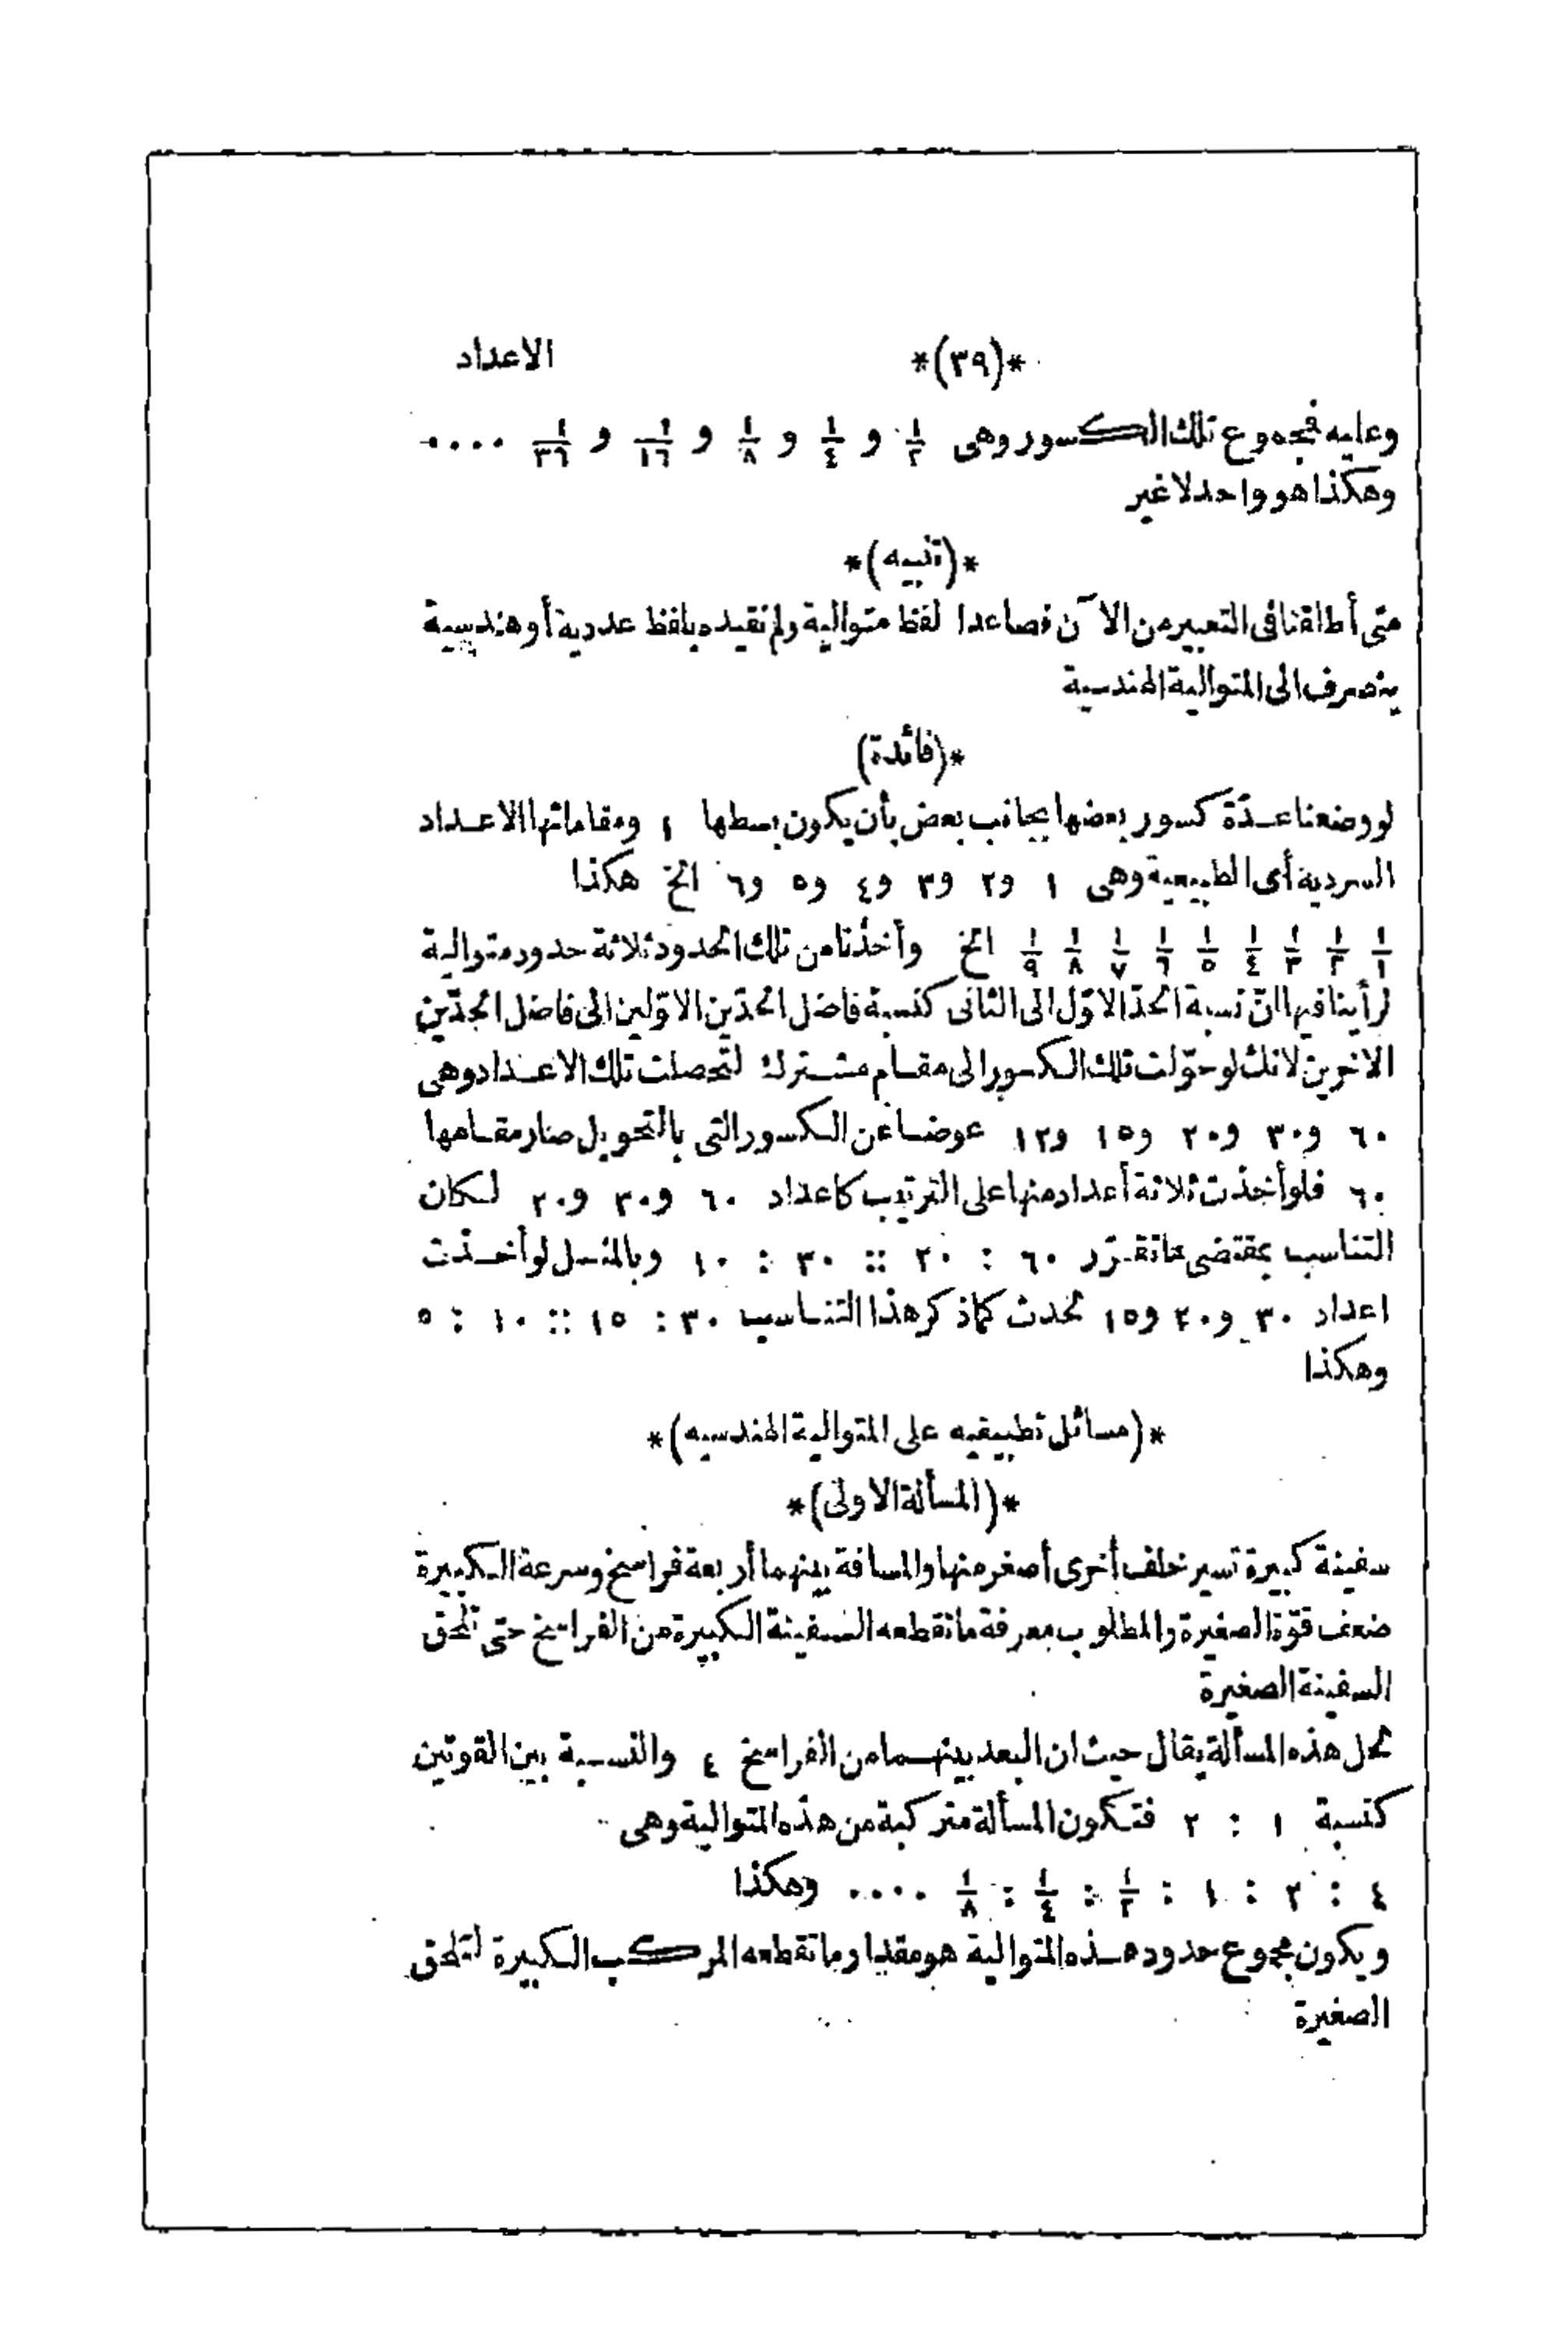 *(٣٩)* الاعداد
وعليه فمجموع تلك الكسور وهى ١/٢ و ١/٤ و ١/٨ و ١/١٦ و ١/٣٦ ....
وهكذا هو واحد لا غير
*(تنبيه)*
متى أطلقنا فى التعبير من الآن فصاعدا لفظ متوالية ولم نقيده بلفظ عددية أو هندسية
ينصرف الى المتوالية الهندسية
*(فائدة)
لو وضعنا عدّة كسور بعضها بجانب بعض بأن يكون بسطها ١ ومقاماتها الاعداد
السردية أى الطبيعية وهى ١ و٢ و٣ و٤ و٥ و٦ الخ هكذا
١/١ ١/٢ ١/٣ ١/٤ ١/٥ ١/٦ ١/٧ ١/٨ ١/٩ الخ وأخذنا من تلك الحدود ثلاثة حدود متوالية
لرأينا فيها انّ نسبة الحدّ الاوّل الى الثانى كنسبة فاضل الحدّين الاوّلين الى فاضل الحدّين
الاخرين لانك لو حوّلت تلك الكسور الى مقام مشترك لتحصلت تلك الاعداد وهى
٦٠ و٣٠ و٢٠ و١٥ و١٢ عوضا عن الكسور التى بالتحويل صار مقامها
٦٠ فلو أخذت ثلاثة أعداد منها على الترتيب كاعداد ٦٠ و٣٠ و٢٠ لكان
التناسب بمقتضى ما تقرّر ٦٠ : ٢٠ :: ٣٠ : ١٠ وبالمثل لو أخذت
اعداد ٣٠ و٢٠ و١٥ لحدث كما ذكر هذا التناسب ٣٠ : ١٥ :: ١٠ : ٥
وهكذا
*(مسائل تطبيقيه على المتوالية الهندسيه)*
*(المسألة الاولى)*
سفينة كبيرة تسير خلف أخرى أصغر منها والمسافة بينهما أربعة فراسخ وسرعة الكبيرة
ضعف قوّة الصغيرة والمطلوب معرفة ما تقطعه السفينة الكبيرة من الفراسخ حتى تلحق
السفينة الصغيرة
لحل هذه المسألة يقال حيث ان البعد بينهما من الفراسخ ٤ والنسبة بين القوتين
كنسبة ١ : ٢ فتكون المسألة متركبة من هذه المتوالية وهى
٤ : ٢ : ١ : ١/٢ : ١/٤ : ١/٨ .... وهكذا
ويكون مجموع حدود هذه المتوالية هو مقدار ما تقطعه المركب الكبيرة لتلحق
الصغيرة